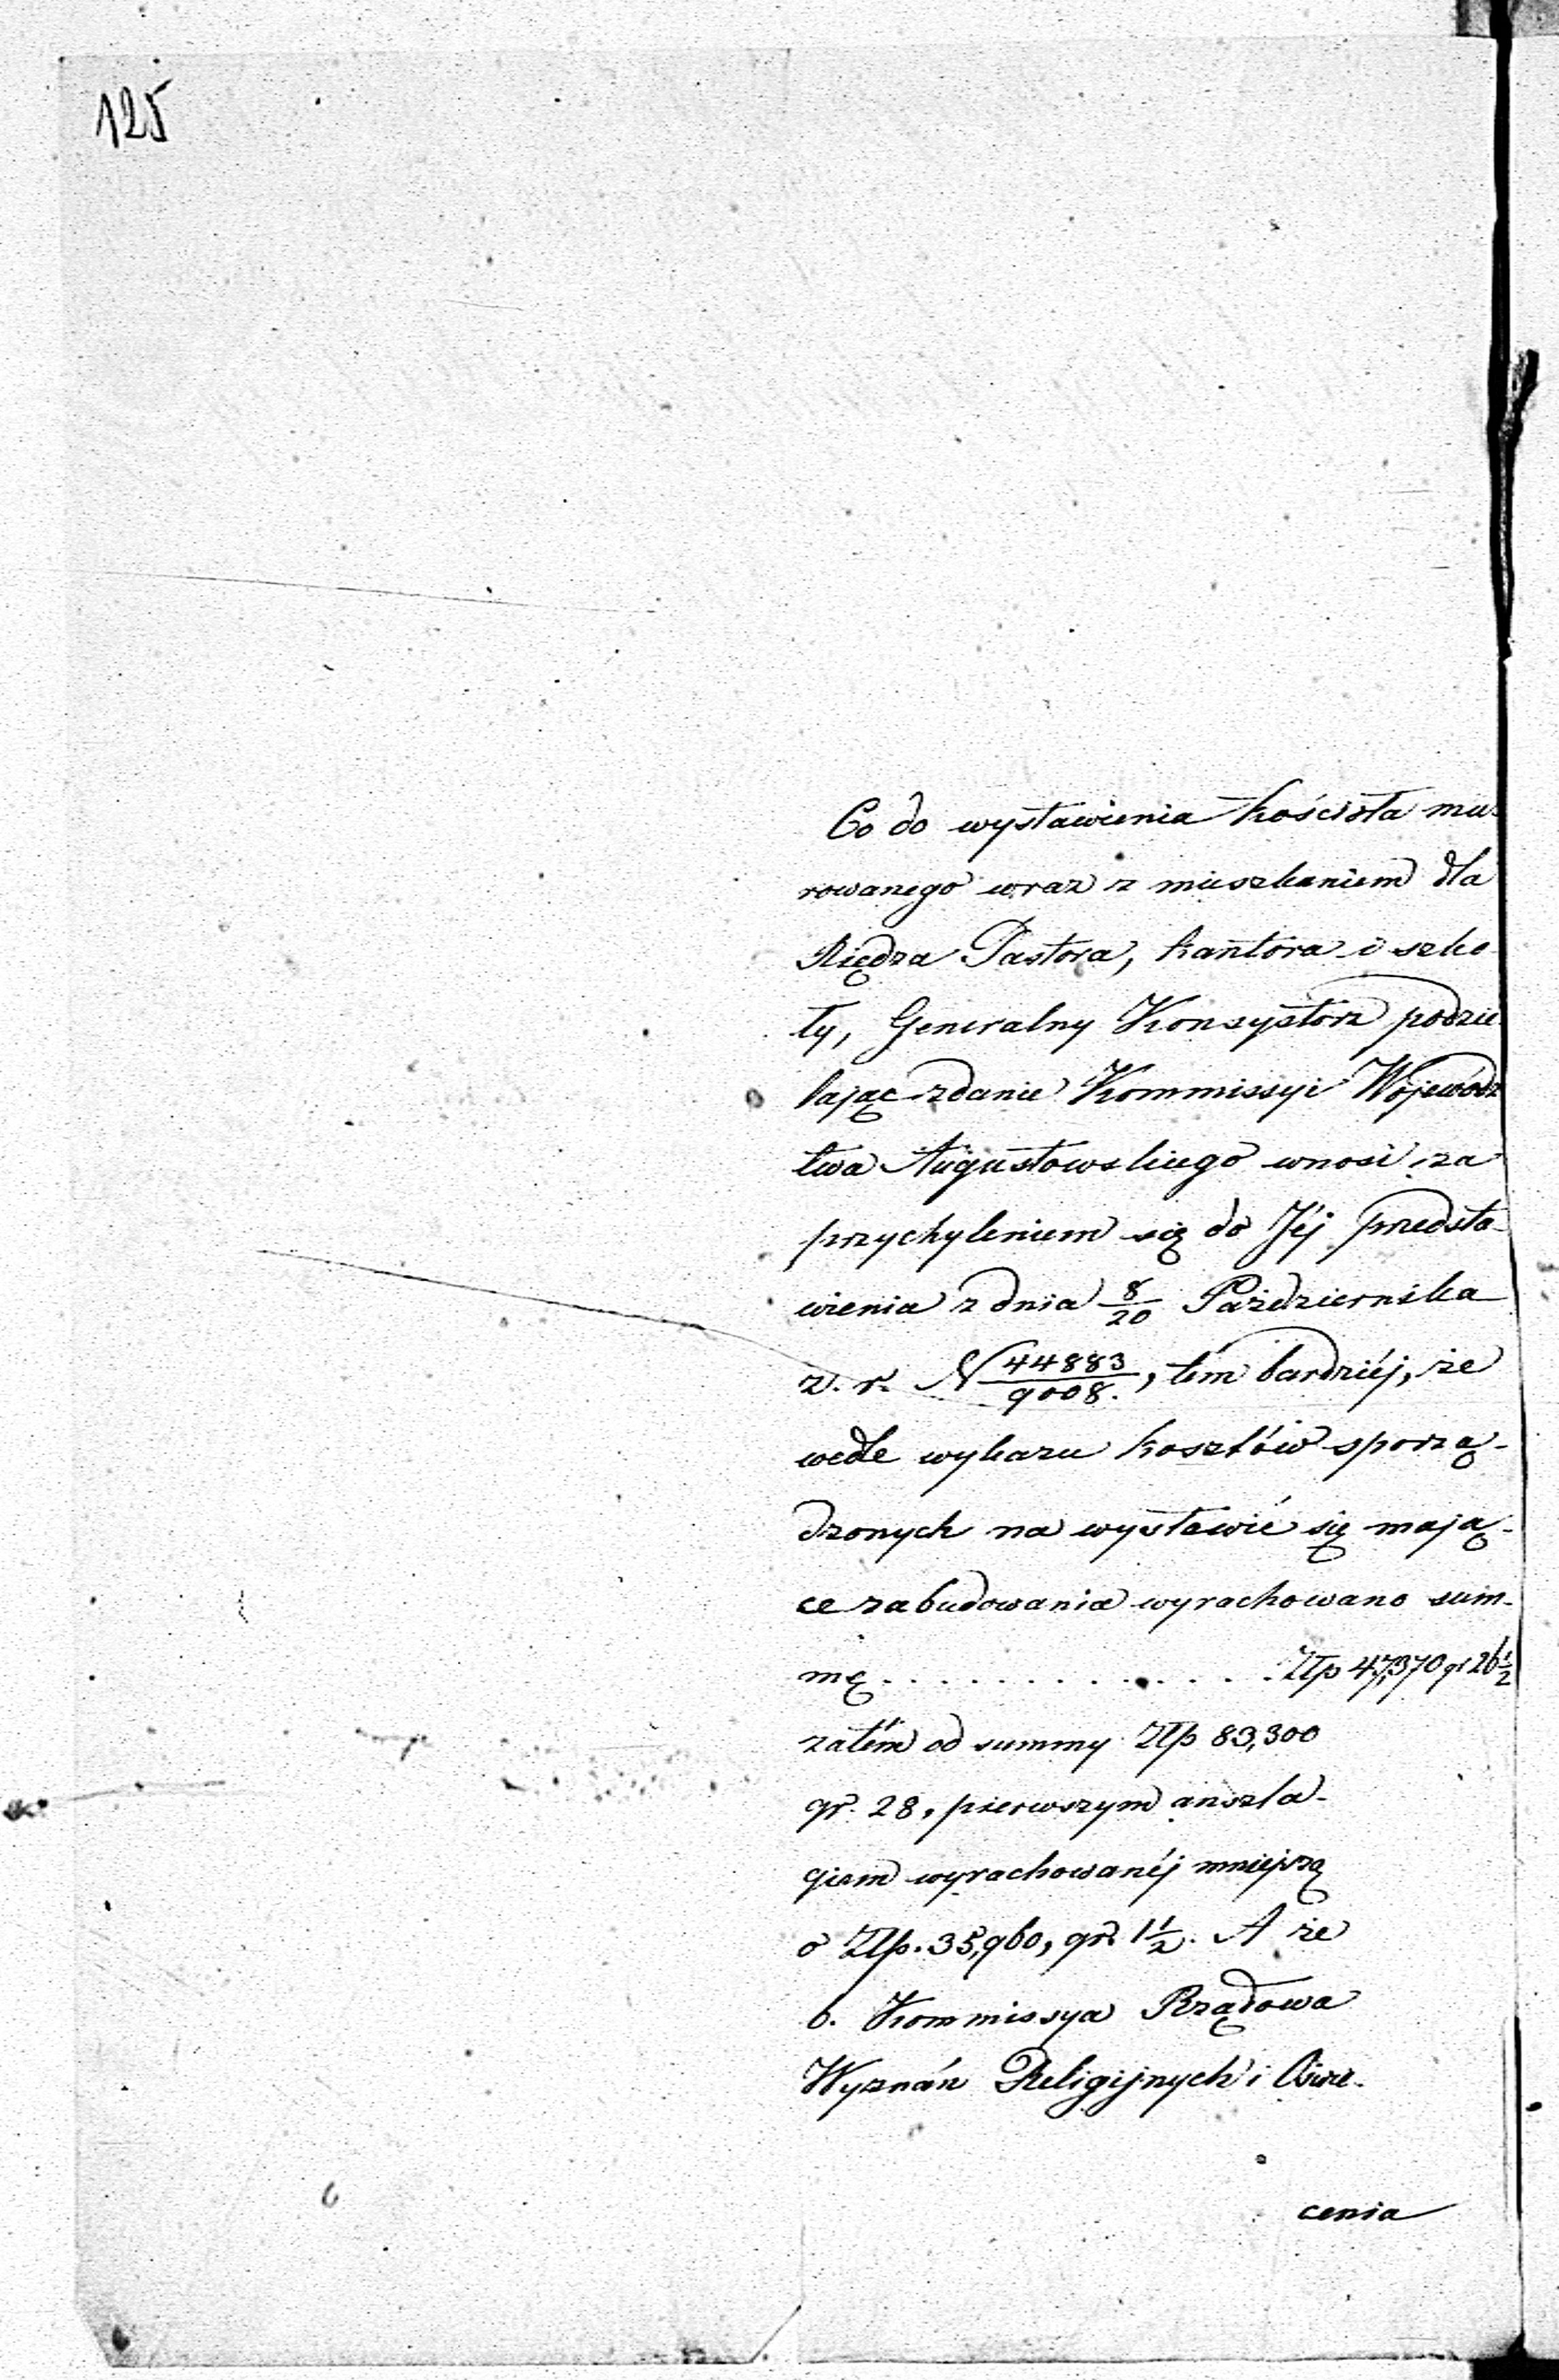 125
Co do wystawienia kościoła mu-
rowanego wraz z mieszkaniem dla
Xiędza Pastora, kantora i szko-
ły, Generalny Konsystorz podzie-
lając zdanie Kommissyi Wojewódz
twa Augustowskiego wnosi za
przychyleniem się do Jéj przedsta-
wienia z dnia 8/20 Października
z. r. N 44883/9008., tém bardziéj, że
wedle wykazu kosztów sporzą-
dzonych na wystawić się mają-
ce zabudowania wyrachowano sum-
mę . . . . . . . . . . . . . . Złp 47,370 gr 26 1/2
zatém od summy Złp 83,300
gr. 28, pierwszym anszla-
giem wyrachowanéj mniejszą
o Złp. 35,960, gr. 1 1/2. A że
b. Kommissya Rządowa
Wyznań Religijnych i Oświe-
cenia